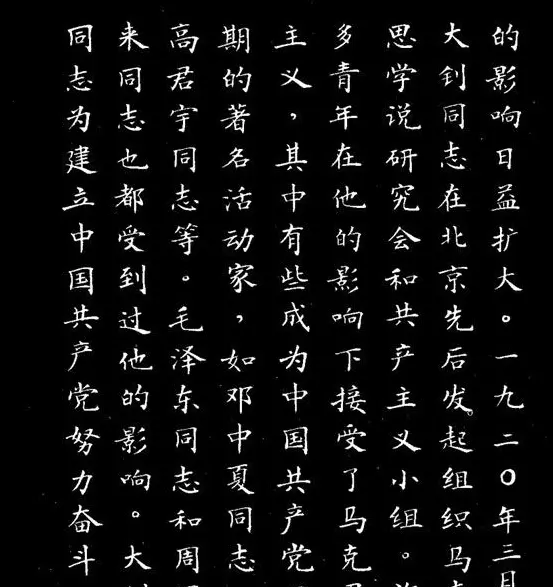 的影响日益扩大。一九二〇年三月
大钊同志在北京先后发起组织马
思学说研究会和共产主义小组。
多青年在他的影响下接受了马克
主义，其中有些成为中国共产党
期的著名活动家，如邓中夏同志
高君宇同志等。毛泽东同志和周
来同志也都受到过他的影响。大
同志为建立中国共产党努力奋斗